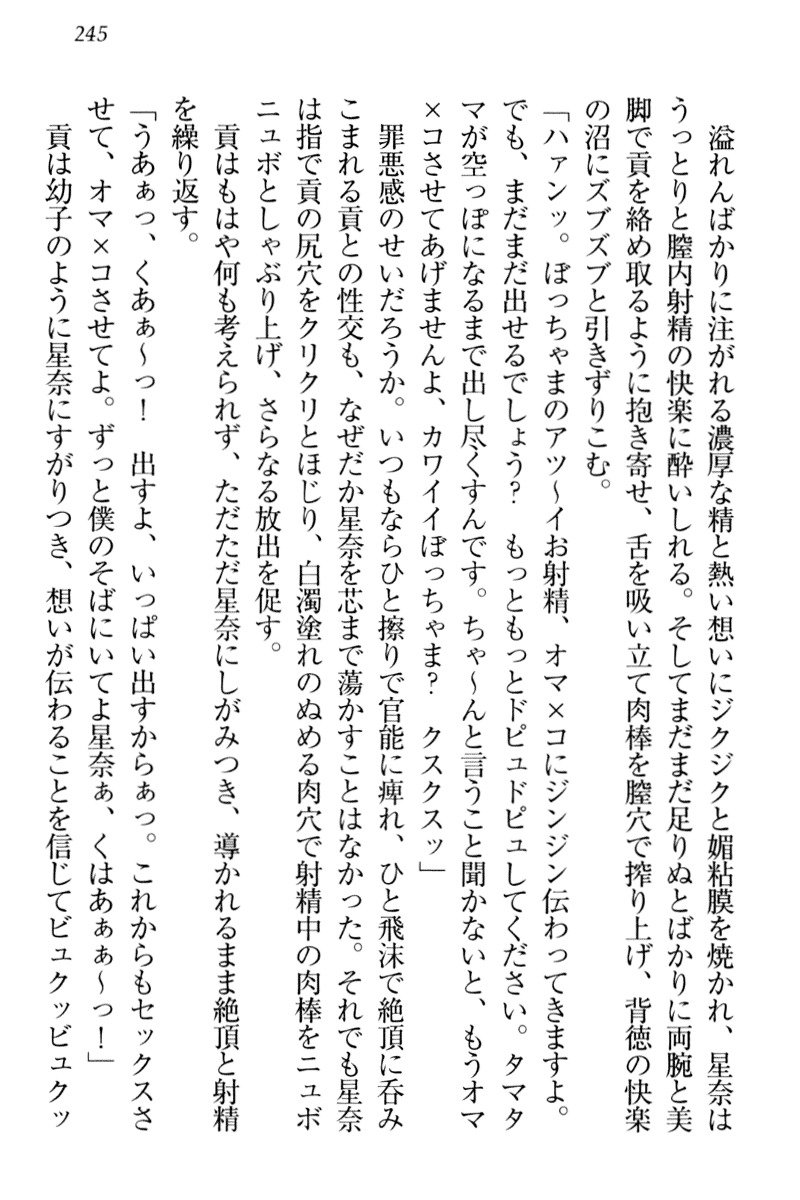 245
溢れんばかりに注がれる濃厚な精と熱い想いにジクジクと媚粘膜を焼かれ、星奈は
うっとりと膣内射精の快楽に酔いしれる。そしてまだまだ足りぬとばかりに両腕と美
脚で貢を絡め取るように抱き寄せ、舌を吸い立て肉棒を膣穴で搾り上げ、背徳の快楽
の沼にズブズブと引きずりこむ。
「ハァンッ。ぼっちゃまのアツ〜イお射精、オマ×コにジンジン伝わってきますよ。
でも、まだまだ出せるでしょう？　もっともっとドピュドピュしてください。タマタ
マが空っぽになるまで出し尽くすんです。ちゃ〜んと言うこと聞かないと、もうオマ
×コさせてあげませんよ、カワイイぼっちゃま？　クスクスッ」
罪悪感のせいだろうか。いつもならひと擦りで官能に痺れ、ひと飛沫で絶頂に呑み
こまれる貢との性交も、なぜだか星奈を芯まで蕩かすことはなかった。それでも星奈
は指で貢の尻穴をクリクリとほじり、白濁塗れのぬめる肉穴で射精中の肉棒をニュボ
ニュボとしゃぶり上げ、さらなる放出を促す。
貢はもはや何も考えられず、ただただ星奈にしがみつき、導かれるまま絶頂と射精
を繰り返す。
「うあぁっ、くあぁ〜っ！　出すよ、いっぱい出すからぁっ。これからもセックスさ
せて、オマ×コさせてよ。ずっと僕のそばにいてよ星奈ぁ、くはあぁぁ〜っ！」
貢は幼子のように星奈にすがりつき、想いが伝わることを信じてビュクッビュクッ